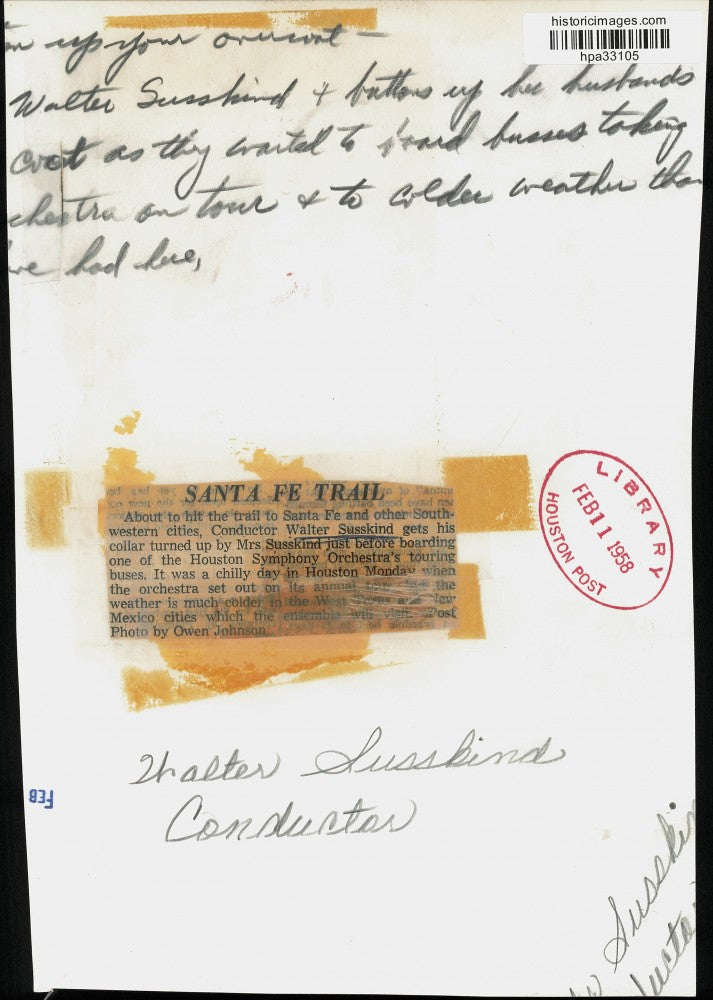 historicimages.com
hpa33105
up your overcoat —
Walter Susskind & buttons up her husbands
coat as they waited to board busses taking
chestra on tour & to colder weather than
've had here,
SANTA FE TRAIL
About to hit the trail to Santa Fe and other South-
western cities, Conductor Walter Susskind gets his
collar turned up by Mrs Susskind just before boarding
one of the Houston Symphony Orchestra's touring
buses. It was a chilly day in Houston Monday when
the orchestra set out on its annual the
weather is much colder in the West Texas and New
Mexico cities which the ensemble will visit. Post
Photo by Owen Johnson.
LIBRARY
FEB 11 1958
HOUSTON POST
Walter Susskind
Conductor
FEB
Susskin
ucto